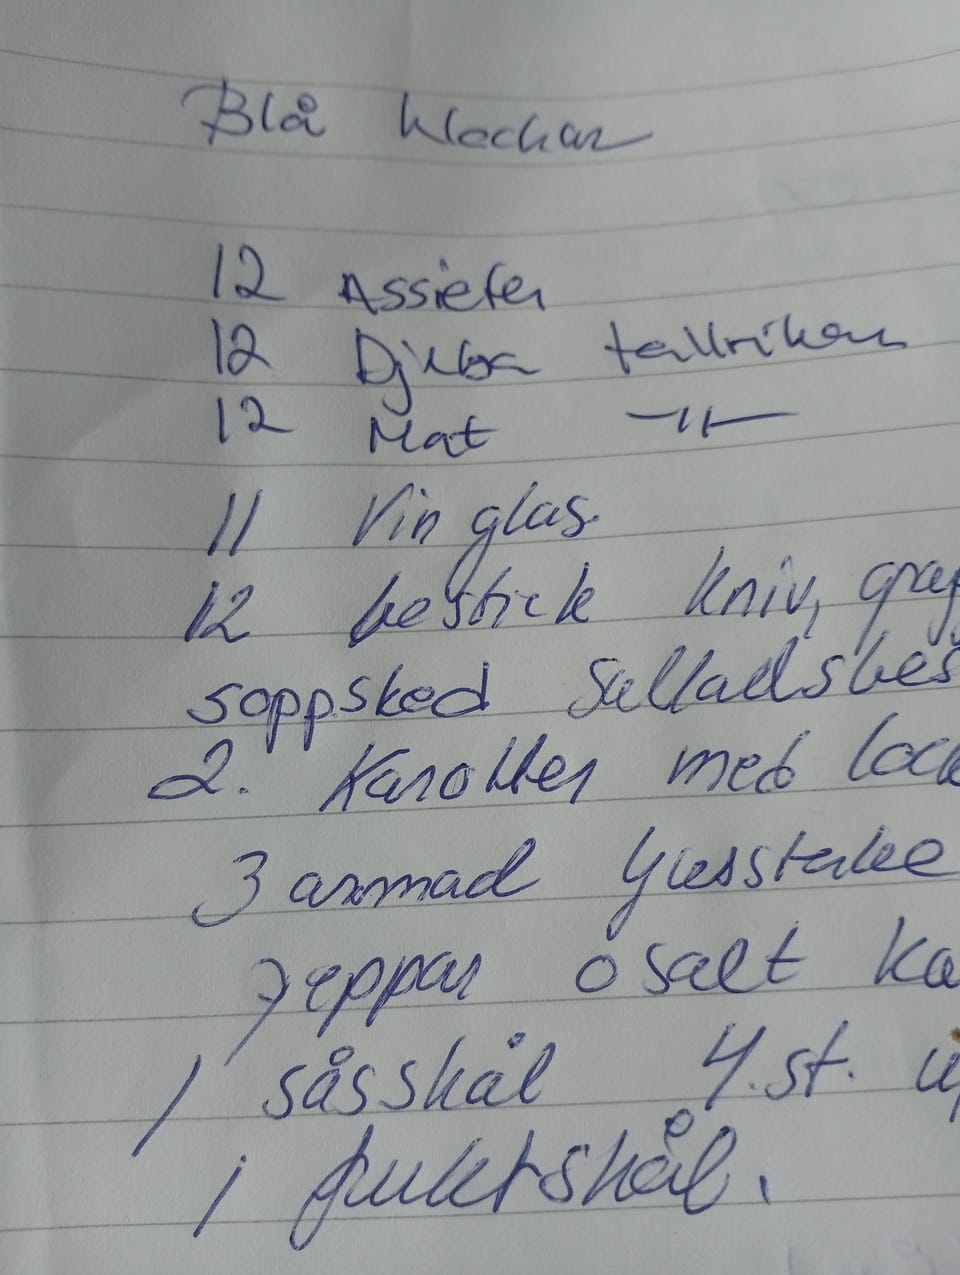 Blå klockar
12 Assieter
12 Djupa tallrikar
12 Mat -11-
11 Vin glas
12 bestick kniv, graf
soppsked Salladsbes
2. Karotter med lock
3 armad ljusstake
peppar o salt ka
1 såsskål 4.st. up
1 fruktskål.